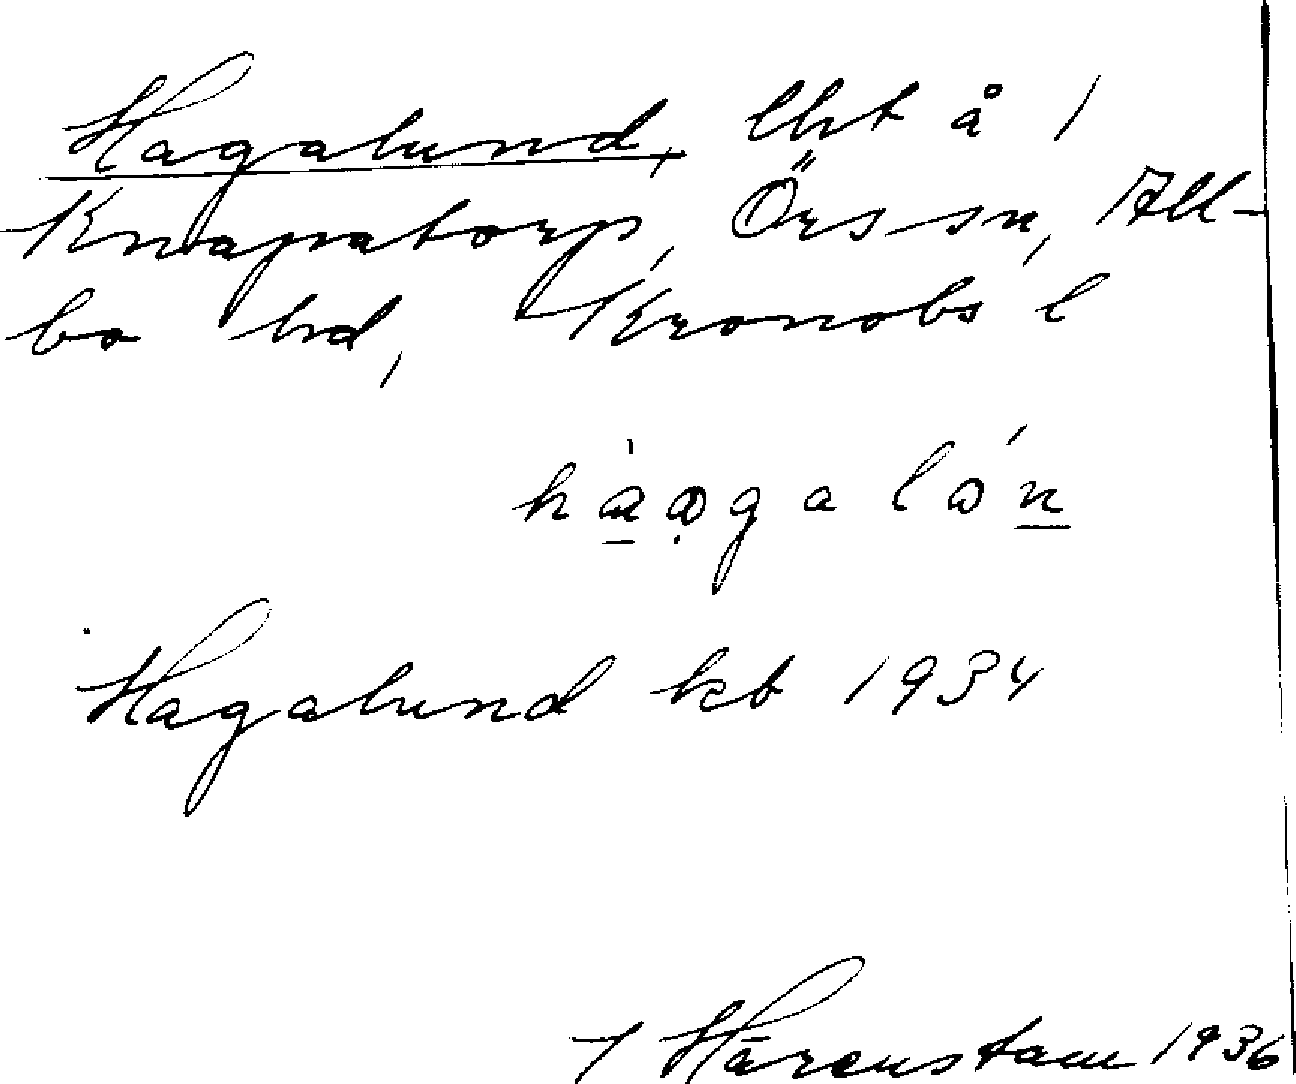 Hagalund, lht å 1
Knapatorp, Örs sn, All-
bo hd, Kronobs l
hàǫgalǫ́n
Hagalund kb 1934
Härenstam 1936